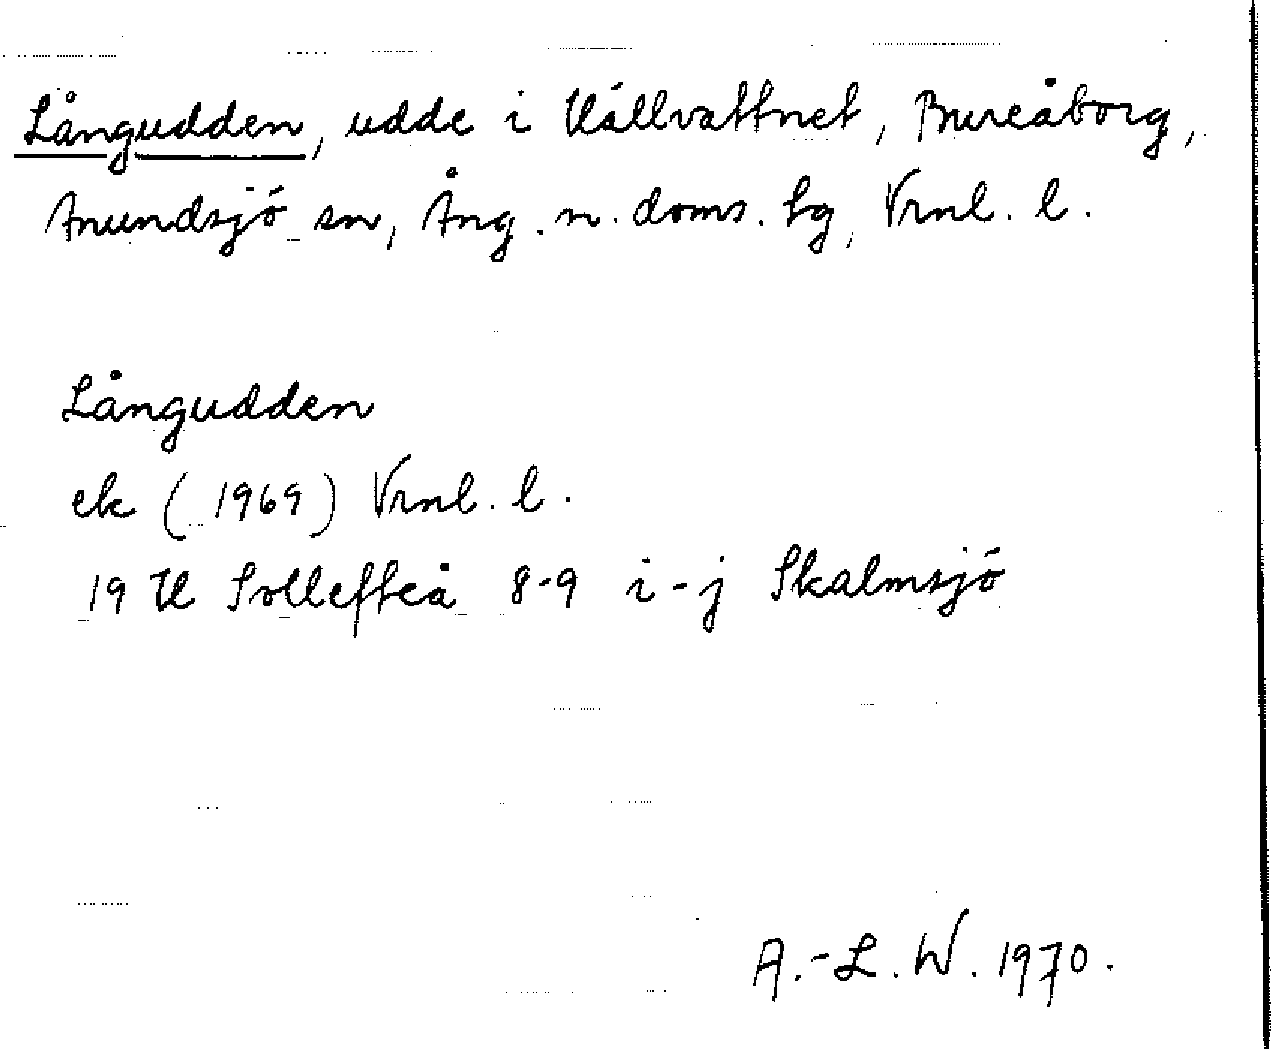 Långudden, udde i Vällvattnet, Bureåborg,
Anundsjö sn, Ång. n. doms. hg, Vrnl. l.
Långudden
ek (1969) Vrnl. l.
19 H Sollefteå 8-9 i-j Skalmsjö
A.-L. W. 1970.